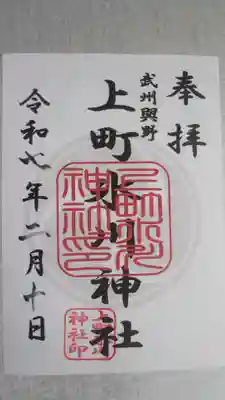 奉拝
武州與野
上町氷川神社
令和七年二月十日